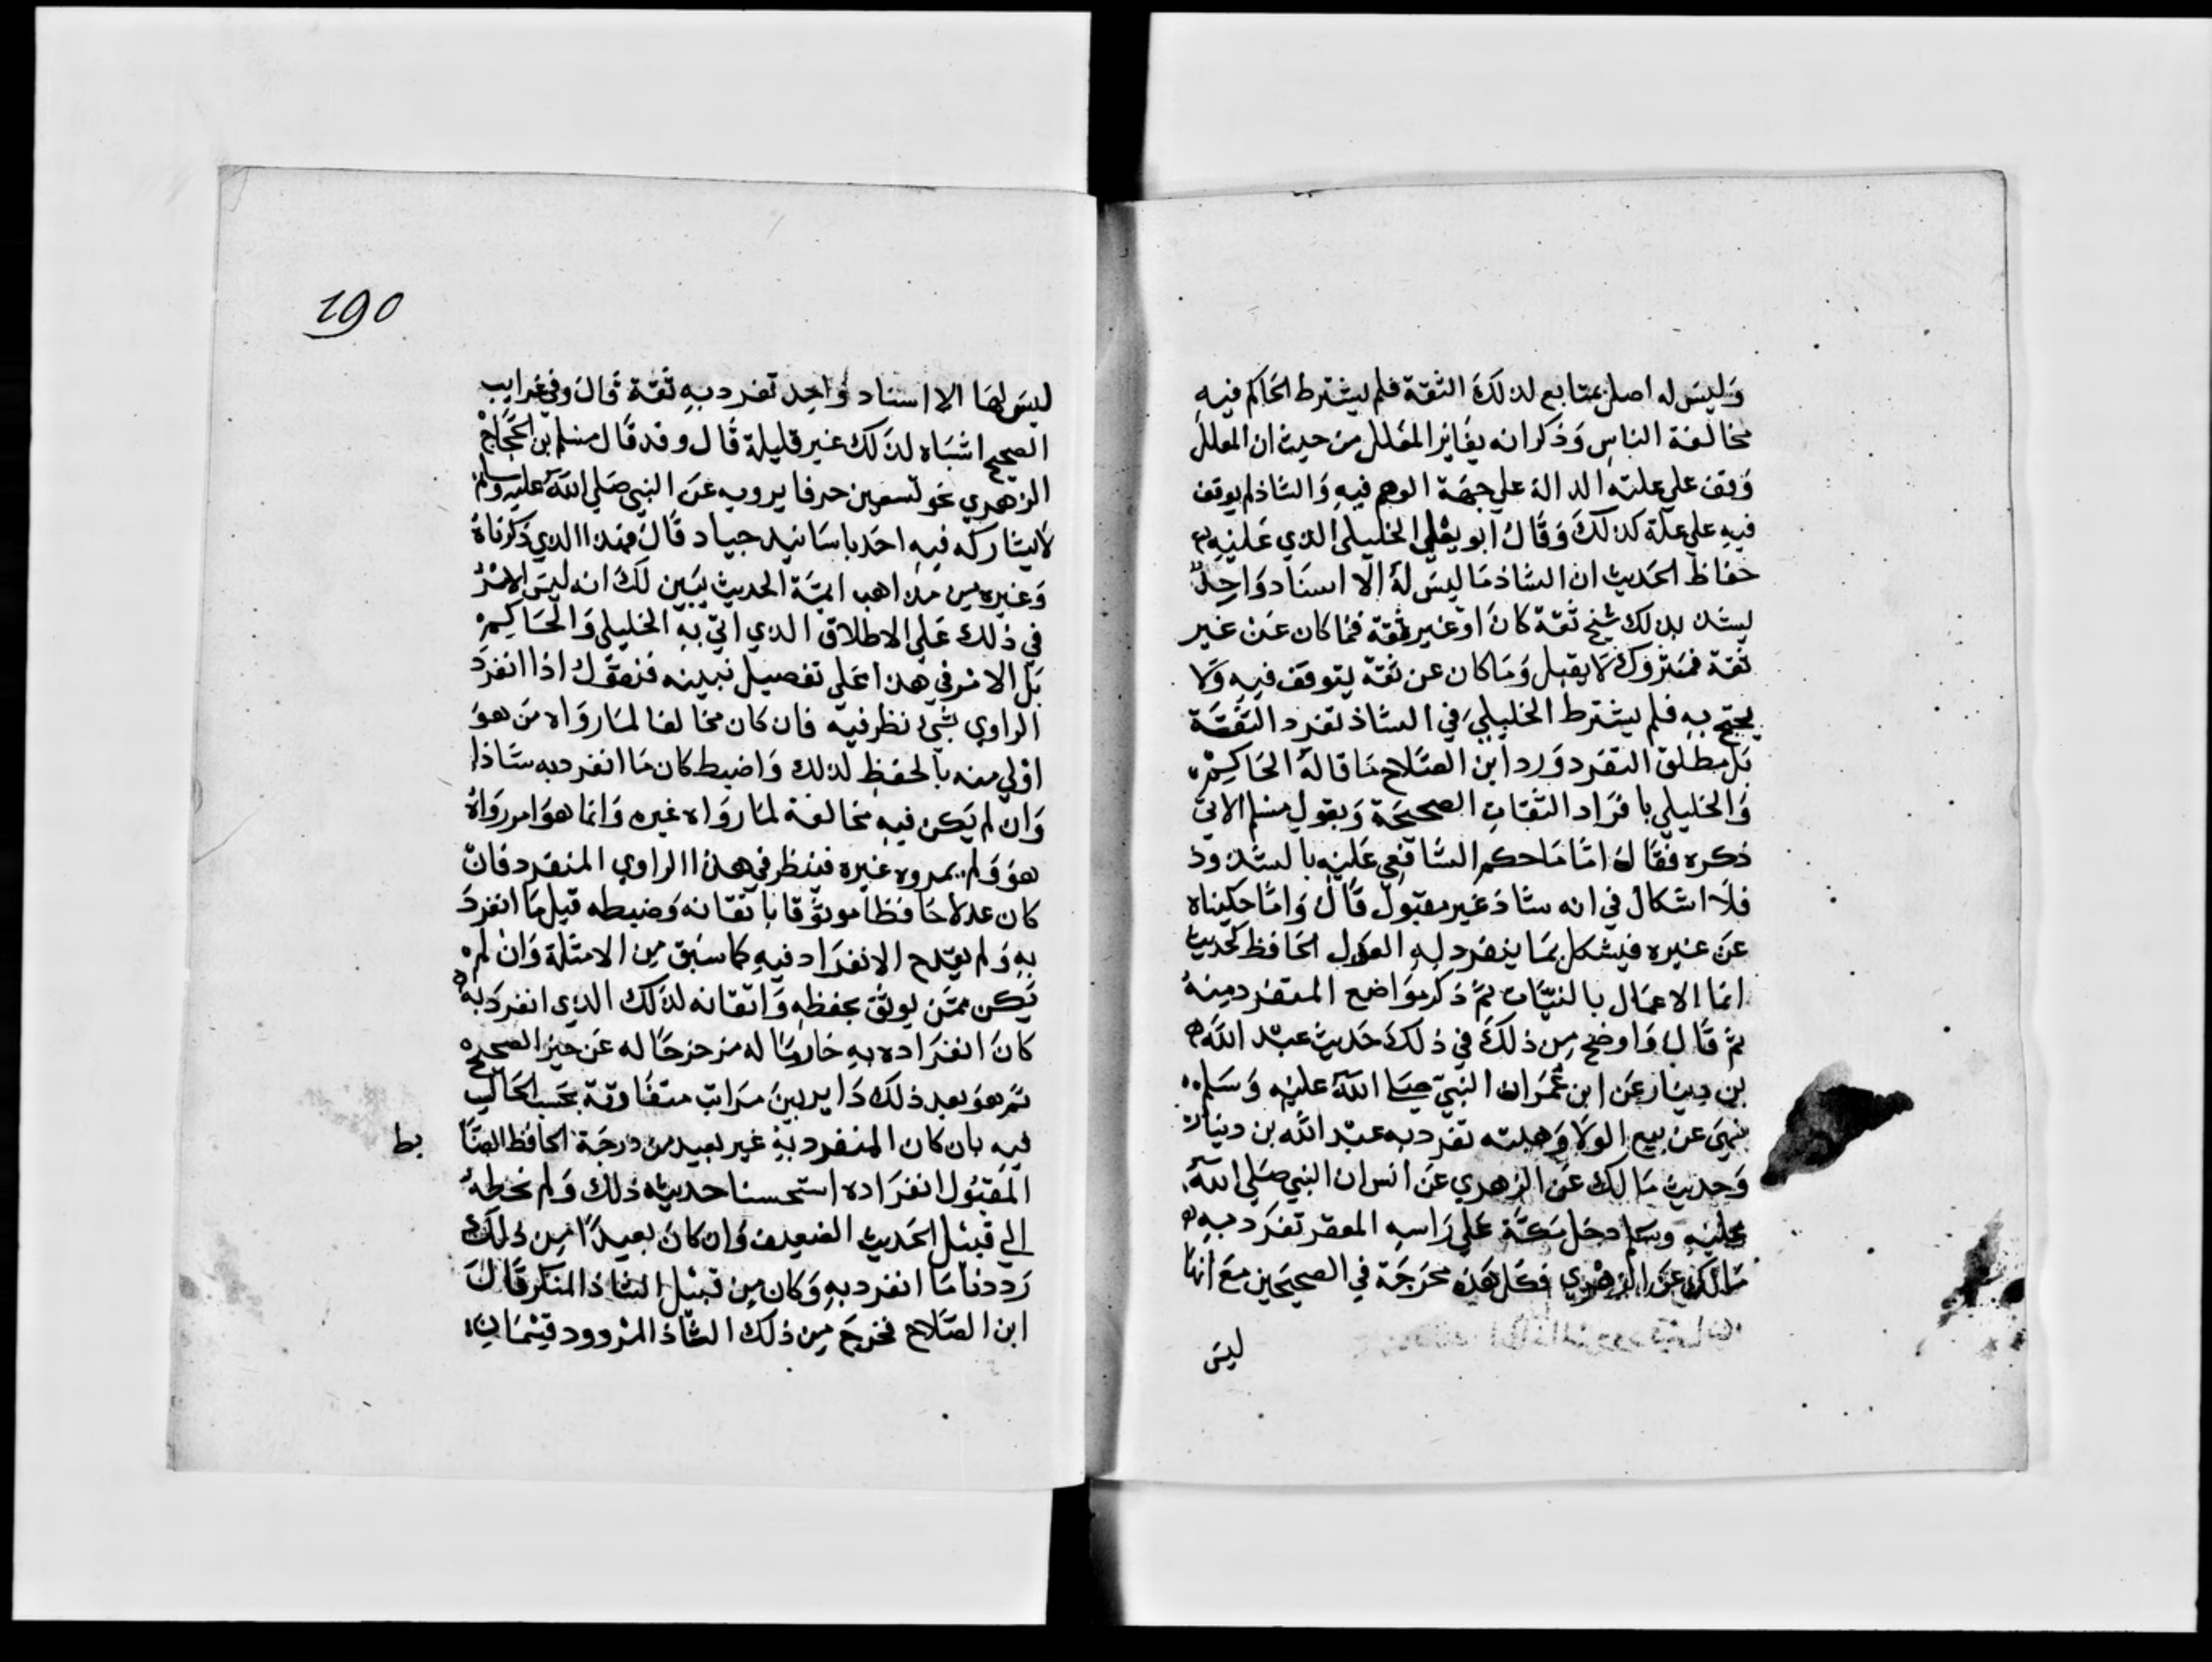 وَليسَ له اصل بمتابع لذلكَ الثقة فلم يشترط الحَاكم فيهِ
مخالفة الناسِ وَذكر انه يغاير المعَلل من حيث ان المعلل
وَقف علي علته الدالة علي جهَة الوهم فيهِ وَالشاذ لم يوقف
فيهِ علي علة كذلكَ وَقَالَ ابو يعْلي الخليلي الذي عَليْهِ
حفاظ الحَديث ان الشاذ مَا ليسَ لهُ الا اسنَاد وَاحِدٌ
يشذ بذلك شيخ ثقة كانَ اوْ غير ثقة فما كان عَنْ غير
ثقة فمتروكٌ لَا يقبل وَمَا كان عن ثقة يتوقف فيهِ وَلَا
يحتج بهِ فلم يشترط الخليليُ في الشاذ تفرد الثقَة
بَل مطلق التفرد وَرد ابن الصّلاح مَا قالهُ الحَاكِمُ
وَالخليلي بافرَاد الثقاتِ الصحيحَة وَبقولِ مسلم الاتي
ذكره فقَالَ امّا مَا حكم الشافعي عَليْهِ بالشذوذ
فلَا اشكال في انه شاذ غير مقبول قَالَ وَامَّا حكيناه
عَنَ غيره فيشكل بمَا ينفرد بهِ العدل الحَافظ كحديث
انما الاعمَال بالنيّات ثمَّ ذكر موَاضع المتفرد مِنهُ
ثم قَالَ وَاوضح مِن ذلكَ في ذلكَ حَديث عبْد اللَّه
بن دينَار عَن ابن عُمَر ان النبيّ صلى اللهَ عليْهِ وَسَلم
نهيَ عن بيع الولا وَهبته تفرد به عبْد الله بن دينار
وَحديث مَالك عَن الزهري عَن انس ان النبي صَلي اللهَ
عليْهِ وسَلم دخل مَكّة عَلي رَاسهِ المغفر تفرَد بهِ
مَالك عَن الزهْري فكل هَذه مخرَجَة في الصحيحَين معَ انها
ليسَ
190
ليسَ لهَا الا اسناد وَاحِد تفرد بهِ ثقة قَالَ وفي غرايب
الصحيح اشبَاه لذَلك غير قليلة قَال وقد قَال مسلم بن الحَجاج
الزهْري نحو تسعين حرفا يرويه عَنَ النبي صَلي اللهَ عليهِ وسلم
لَا يشاركه فيهِ احَد باسَانيد جيَاد قَالَ فهَذا الذي ذكرناهُ
وَغيره مِن مذاهب ايمّة الحديث يبَين لكَ انه ليسَ الامْرُ
في ذلك عَلي الاطلاق الذي اتي بهِ الخليلي وَالحَاكِمُ
بَل الامْر في هَذا عَلي تفصيل نبينه فنقول اذا انفرَدَ
الراوي بشيْ نظر فيه فان كان مخالفا لمَا روَاه مَن هوَ
اوْلي منه بالحفظ لذلك وَاضبط كان مَا انفرد به شَاذا
وَان لم يَكن فيهِ مخالفة لمَا روَاه غيره وَانما هوَ امر روَاهُ
هوَ وَلم يروه غيره فينظر في هَذا الراوي المنفرد فانْ
كان عدلا حَافظا موثوقا باتقانه وَضبطه قبل مَا انفرَدَ
بهِ وَلم يقدح الانفرَاد فيهِ كما سَبق مِن الامثلة وَانْ لم
يَكن ممَّن يوثق بحفظهِ وَاتقانه لذَلك الذي انفرَد بهِ
كانَ انفرَاده بهِ خارمًا له مزحزحًا له عَن حيز الصحيح
ثم هوَ بعد ذلك دَاير بينَ مرَاتب متفَاوتة بحَسب الحَال
فيهِ بان كان المنفرد بهِ غير بعيد من درجَة الحافظ الضّا
بط
المَقبُول انفرَاده استحسنا حديثه ذلكَ وَلم نحطهُ
الي قبيْل الحَديث الضعيف وَان كانَ بعيدًا مِن ذلكَ
رَددنا مَا انفرد بهِ وَكان مِن قبيْل الشاذ المنكر قَالَ
ابن الصَلاح فخرجَ مِن ذلكَ الشاذ المرْدود قِسْمَان